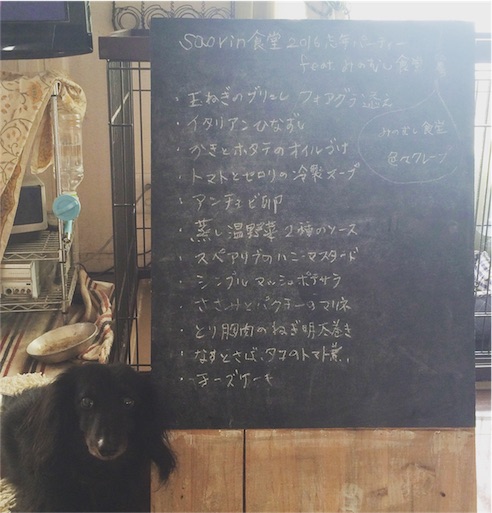 saorin食堂 2016忘年パーティー
feat. みのむし食堂
・玉ねぎのブリュレ フォアグラ添え
・イタリアンひなずし
・かきとホタテのオイルづけ
・トマトとセロリの冷製スープ
・アンチョビ卵
・蒸し温野菜 2種のソース
・スペアリブのハニーマスタード
・シンプルマッシュポテサラ
・ささみとパクチーのマリネ
・とり胸肉のねぎ明太巻き
・なすとさば、タコのトマト煮
・チーズケーキ
みのむし食堂